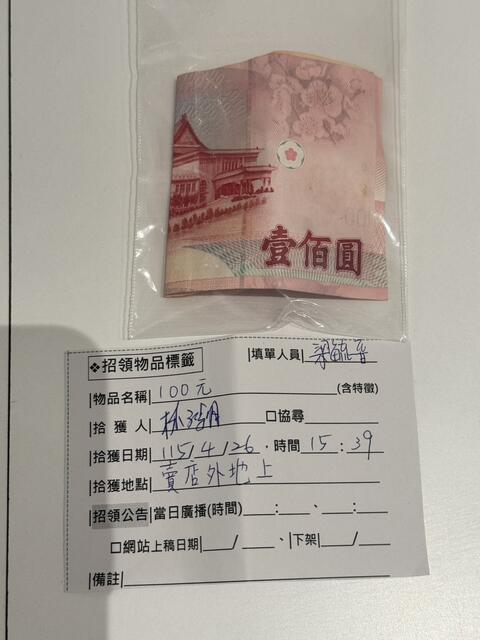 壹佰圓
❖招領物品標籤
填單人員 梁毓音
物品名稱 100元 (含特徵)
拾獲人 □協尋
拾獲日期 115/4/26．時間 15:39
拾獲地點 賣店外地上
招領公告 當日廣播(時間)＿:＿、＿:＿
□網站上稿日期＿/＿、下架＿/＿
備註